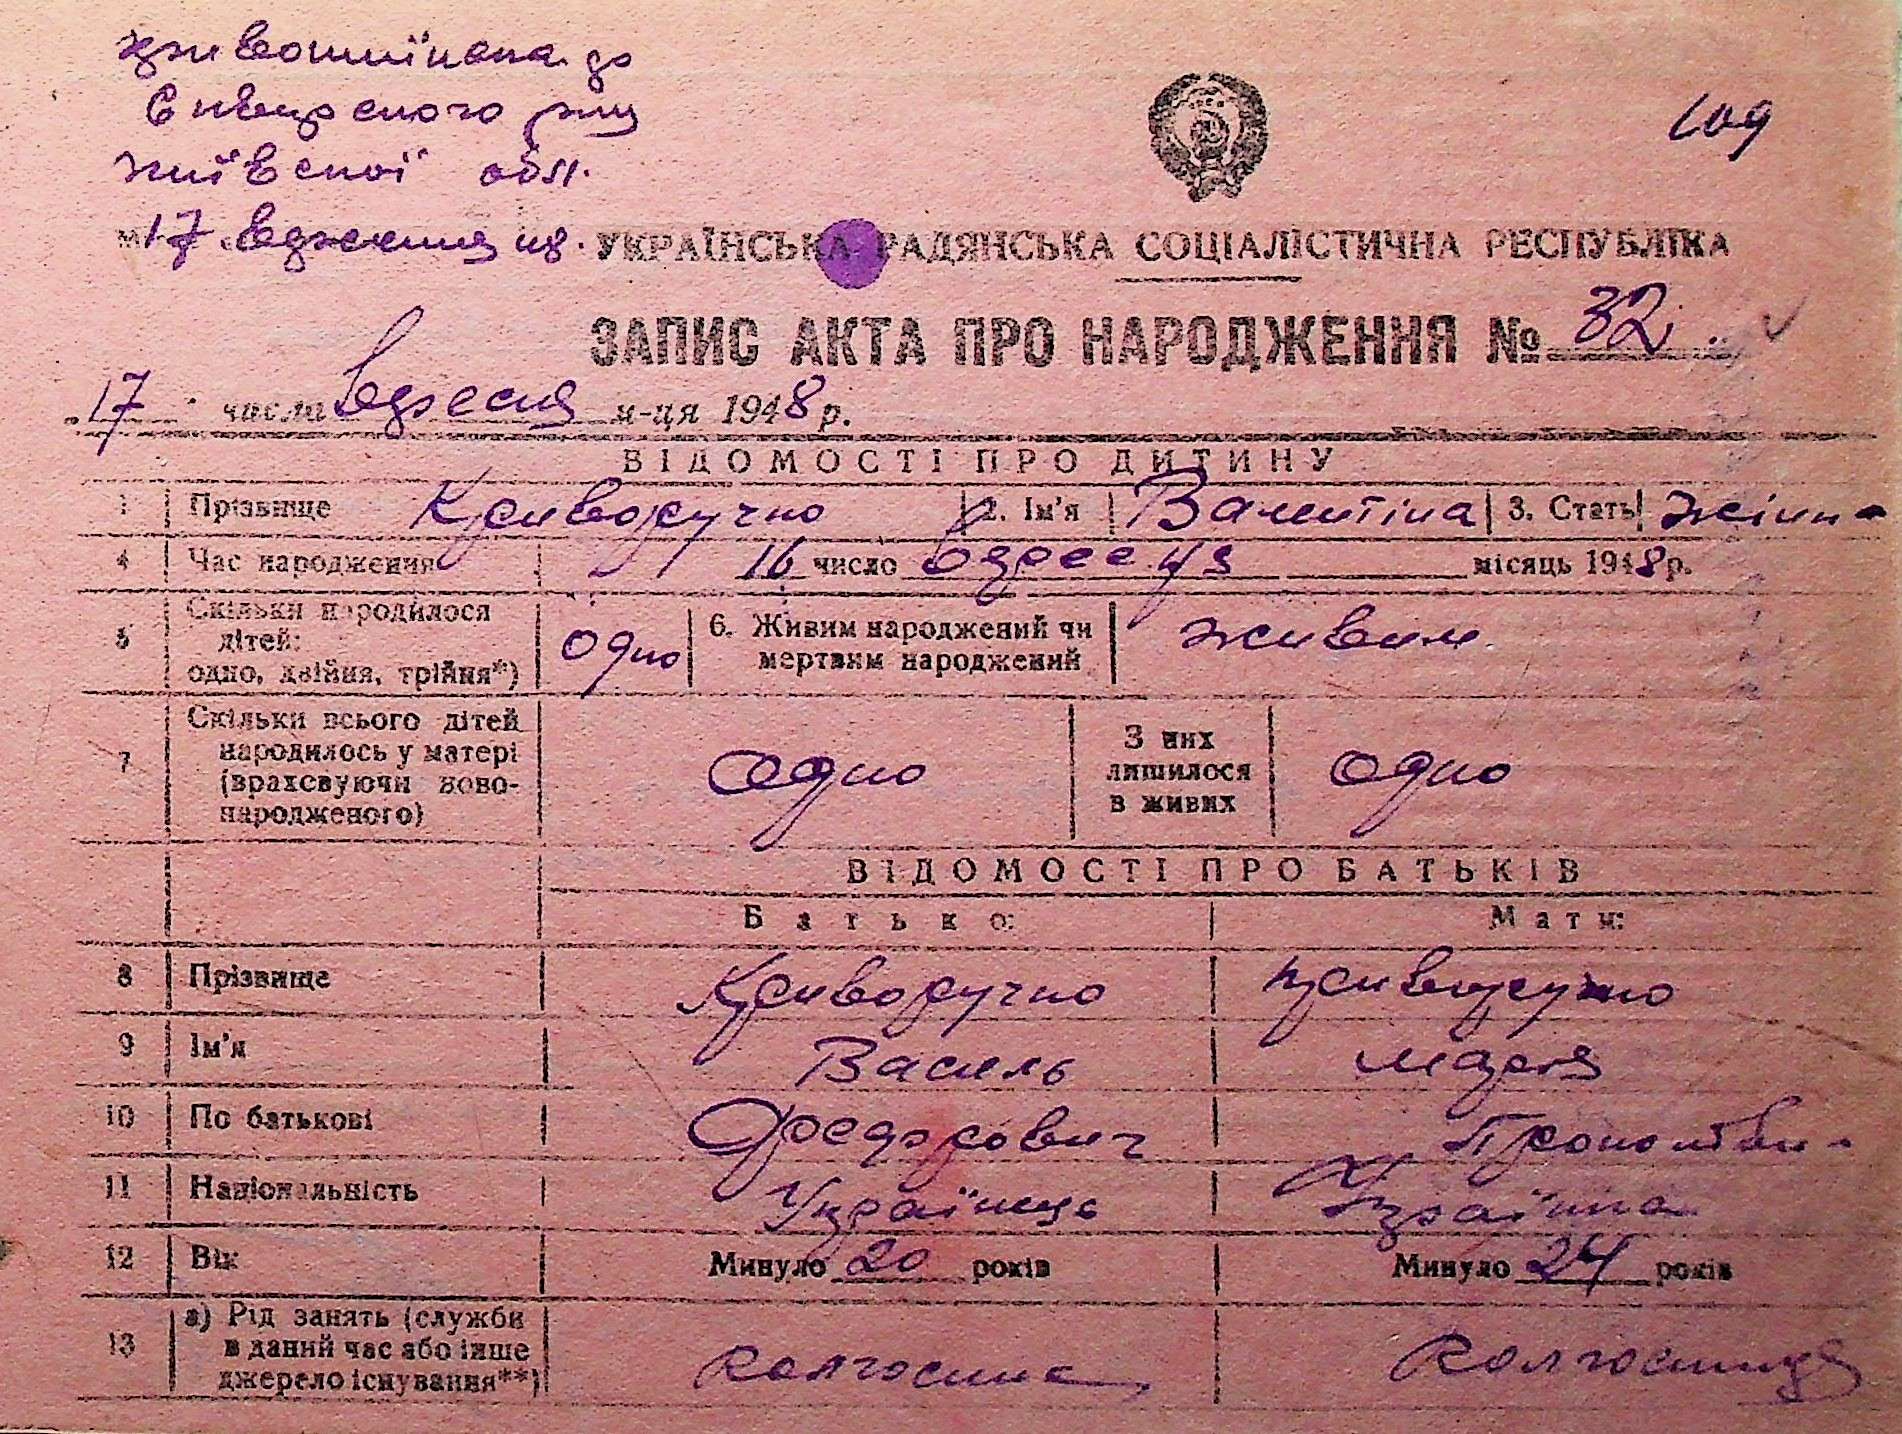 109
Київської обл.
17
УКРАЇНСЬКА РАДЯНСЬКА СОЦІАЛІСТИЧНА РЕСПУБЛІКА
ЗАПИС АКТА ПРО НАРОДЖЕННЯ № 32
17 числа вересня м-ця 1948 р.
ВІДОМОСТІ ПРО ДИТИНУ
1 Прізвище Криворучко 2. Ім'я Валентіна 3. Стать жіноч
4 Час народження 16 число вересця місяць 1948 р.
5 Скільки народилося дітей: одно, двійня, трійня*) одно 6. Живим народжений чи мертвим народжений живим
7 Скільки всього дітей народилось у матері (враховуючи ново-народженого) одно З них лишилося в живих одно
ВІДОМОСТІ ПРО БАТЬКІВ
Батько: Мати:
8 Прізвище Криворучко Криворучко
9 Ім'я Василь Марія
10 По батькові Федорович
11 Національність Українець Українка
12 Вік Минуло 20 років Минуло 24 років
13 а) Рід занять (служби в даний час або інше джерело існування**) колгоспник колгоспниця